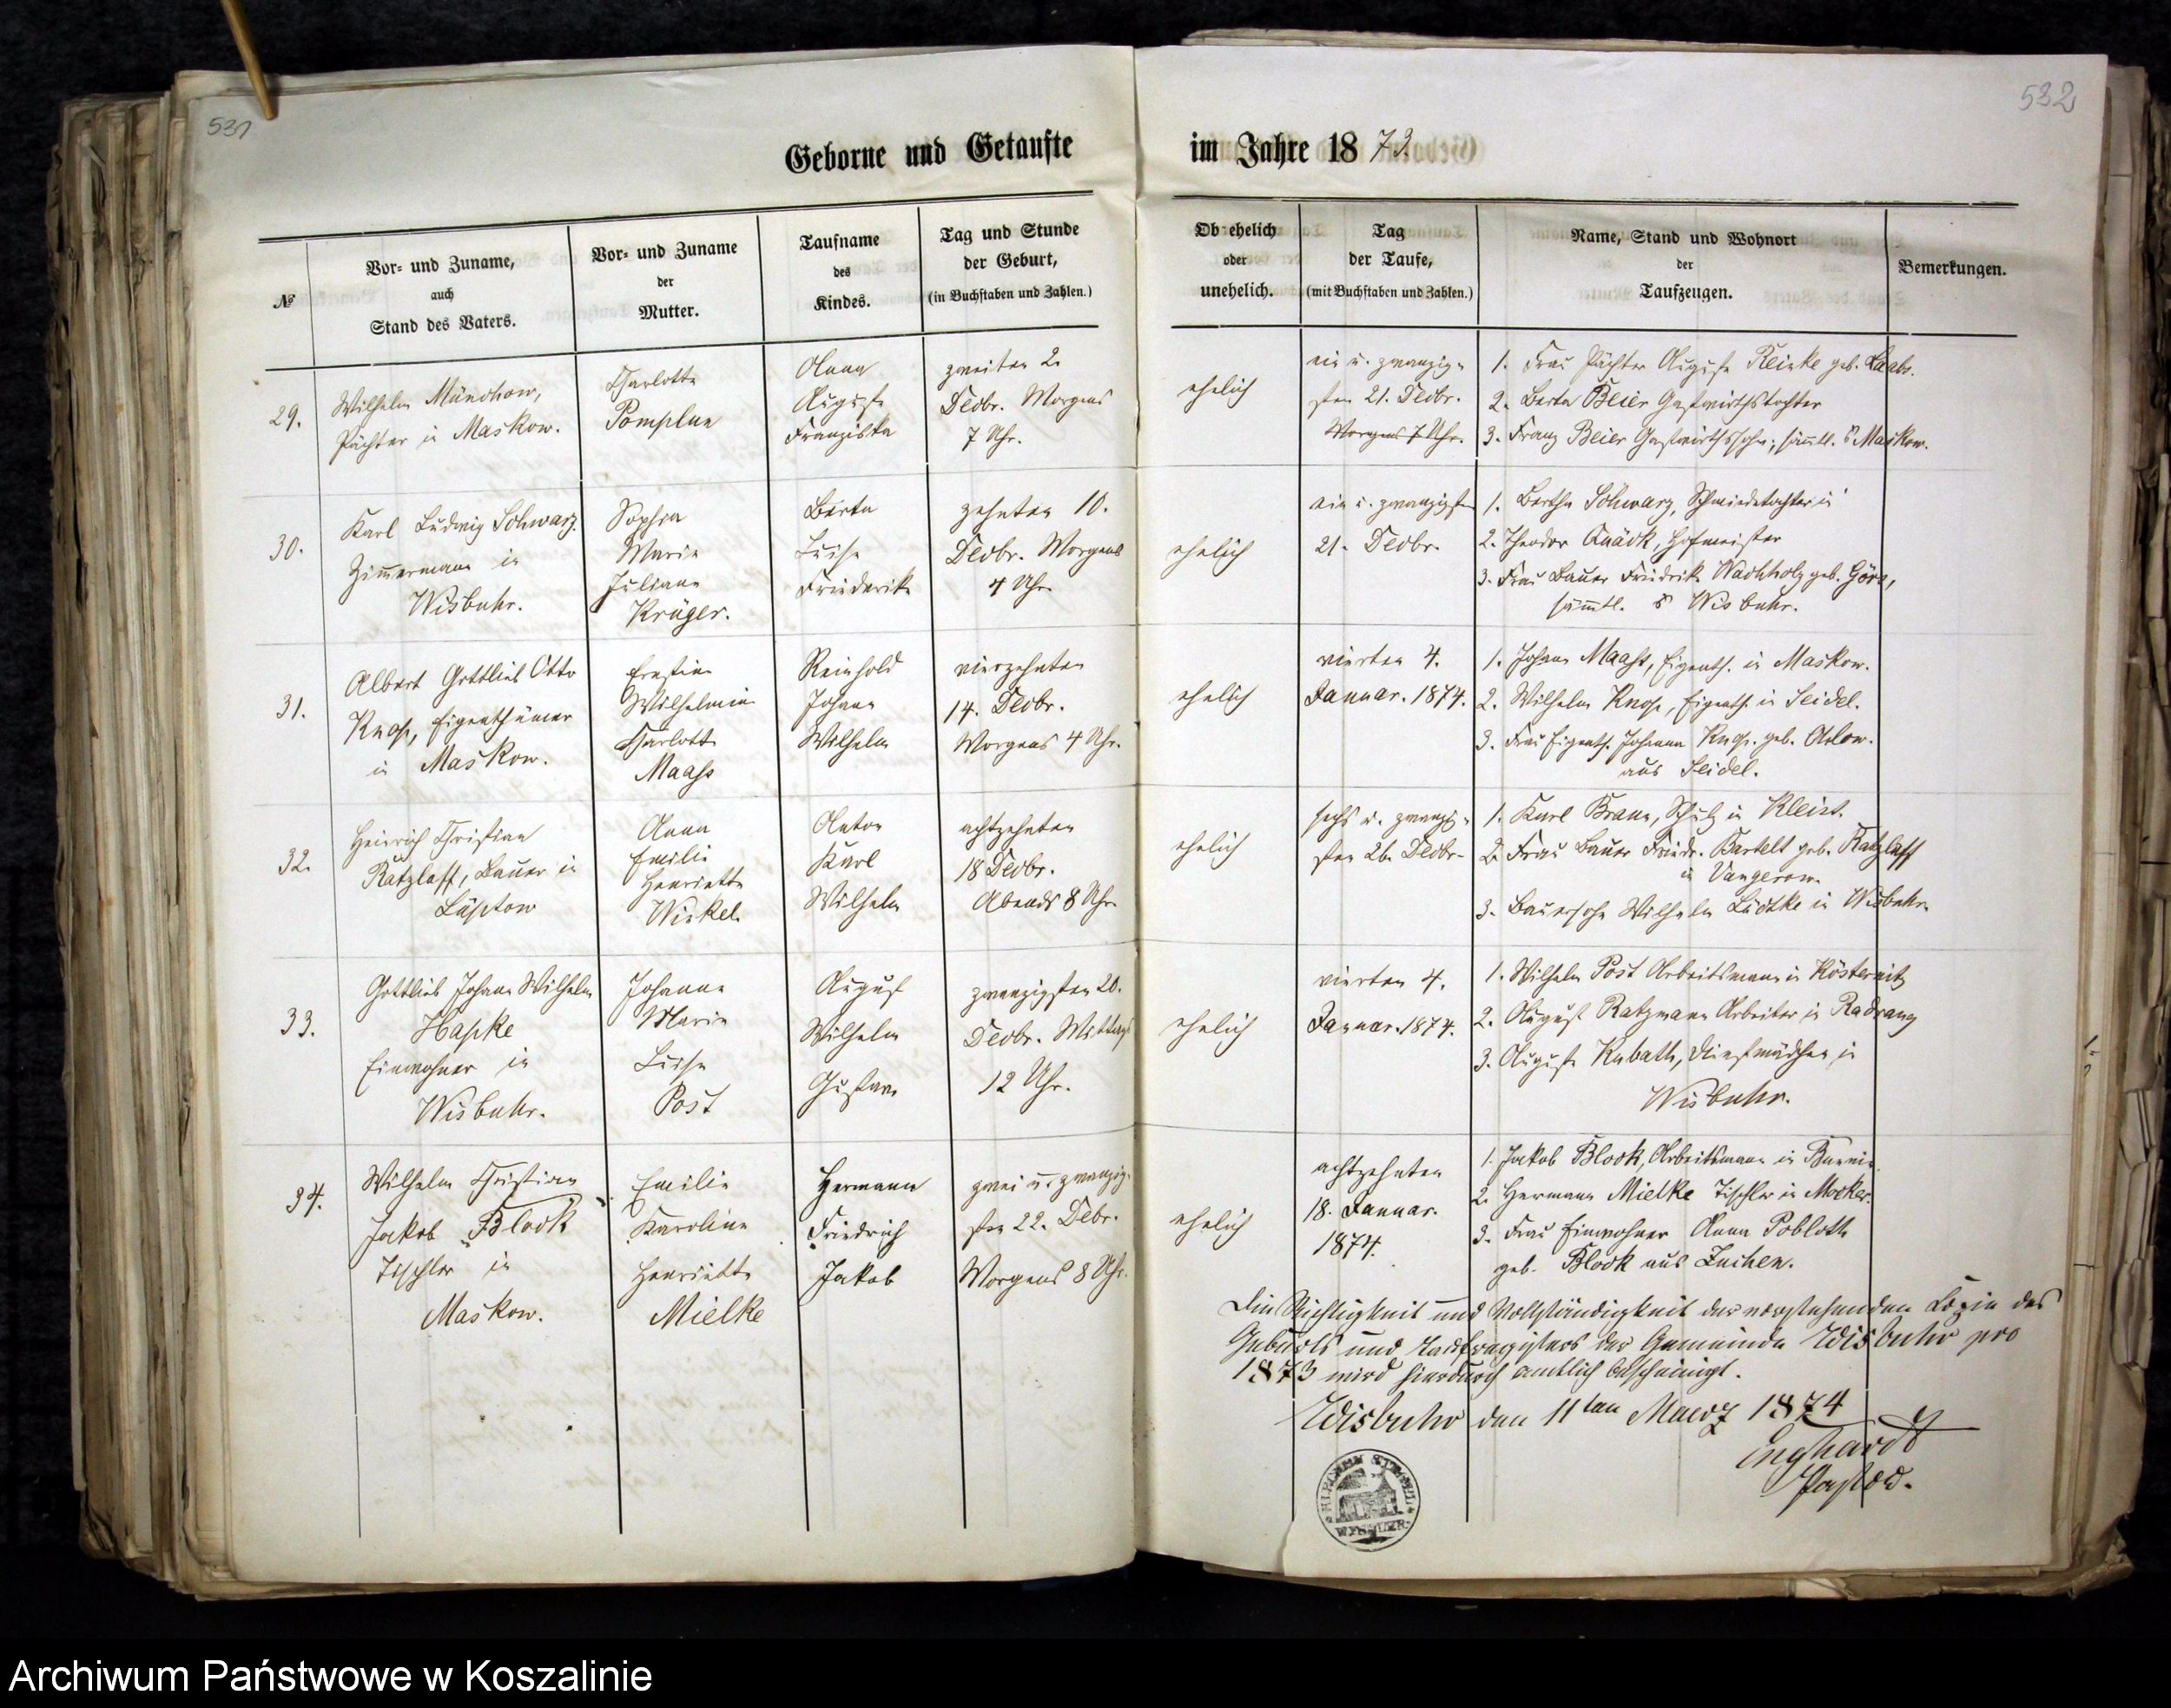 531
532
Geborne und Getaufte im Jahre 1873.
№
Vor- und Zuname,
auch
Stand des Vaters.
Vor- und Zuname
der
Mutter.
Taufname
des
Kindes.
Tag und Stunde
der Geburt,
(in Buchstaben und Zahlen.)
Ob ehelich
oder
unehelich.
Tag
der Taufe,
(mit Buchstaben und Zahlen.)
Name, Stand und Wohnort
der
Taufzeugen.
Bemerkungen.
29.
Wilhelm Münchow,
Pächter in Maskow.
Charlotte
Pomplun
Anna
Auguste
Franziska
zweiten 2.
Decbr. Morgens
7 Uhr.
ehelich
ein u. zwanzig-
sten 21. Decbr.
Morgens 7 Uhr.
1. Frau Pächter Auguste Reinke geb. Laabs.
2. Berta Beier Gastwirthstochter
3. Franz Beier Gastwirthssohn; sämtl. Maskow.
30.
Karl Ludwig Schwarz
Zimmermann in
Wisbuhr.
Sophia
Marie
Juliane
Krüger.
Berta
Luise
Friederike
zehnten 10.
Decbr. Morgens
4 Uhr
ehelich
ein u. zwanzigsten
21. Decbr.
1. Berthe Schwarz, Schmiedetochter in
2. Theodor Quäck, Hofmeister
3. Frau Bauer Friedrike Wachholz geb.
sämmtl. Wisbuhr.
31.
Albert Gottlieb Otto
Knop, Eigenthümer
in Maskow.
Ernstine
Wilhelmine
Charlotte
Maass
Reinhold
Johann
Wilhelm
vierzehnten
14. Decbr.
Morgens 4 Uhr.
ehelich
vierten 4.
Januar. 1874.
1. Johann Maass, Eigenth. in Maskow.
2. Wilhelm Knop, Eigenth. in Seidel.
3. Frau Eigenth. Johanna Knop. geb.
aus Seidel.
32.
Heinrich Christian
Ratzlaff, Bauer in
Lüptow
Anna
Emilie
Henriette
Winkel.
Anton
Karl
Wilhelm
achtzehnten
18 Decbr.
Abends 8 Uhr
ehelich
sechs u. zwanzig-
sten 26. Decbr.
1. Karl Braun, Schulz in Kleist.
2. Frau Bauer Friedr. Bartelt geb. Ratzlaff
in Vangerow.
3. Bauersohn Wilhelm Lüdtke in Wisbuhr.
33.
Gottlieb Johann Wilhelm
Hapke
Einwohner in
Wisbuhr.
Johanne
Marie
Luise
Post
August
Wilhelm
Gustav
zwanzigsten 20.
Decbr. Mittags
12 Uhr.
ehelich
vierten 4.
Januar. 1874.
1. Wilhelm Post Arbeitsmann in Kösternitz
2. August Ratzmann Arbeiter in Radrang
3. Auguste Kubath, Dienstmädchen in
Wisbuhr.
34.
Wilhelm Christian
Jakob Block
Tischler in
Maskow.
Emilie
Karoline
Henriette
Mielke
Hermann
Friedrich
Jakob
zwei u. zwanzig-
sten 22. Debr.
Morgens 8 Uhr.
ehelich
achtzehnten
18. Januar.
1874.
1. Jakob Block, Arbeitsmann in
2. Hermann Mielke Tischler in Mocker.
3. Frau Einwohner Anna Pobloth
geb. Block aus Zuchen.
Die Richtigkeit und Vollständigkeit der vorstehenden Copie des
Geburts und Taufregisters der Gemeinde Wisbuhr pro
1873 wird hierdurch amtlich bescheinigt.
Wisbuhr den 11ten Maerz 1874
Enghardt
Pastor.
Archiwum Państwowe w Koszalinie